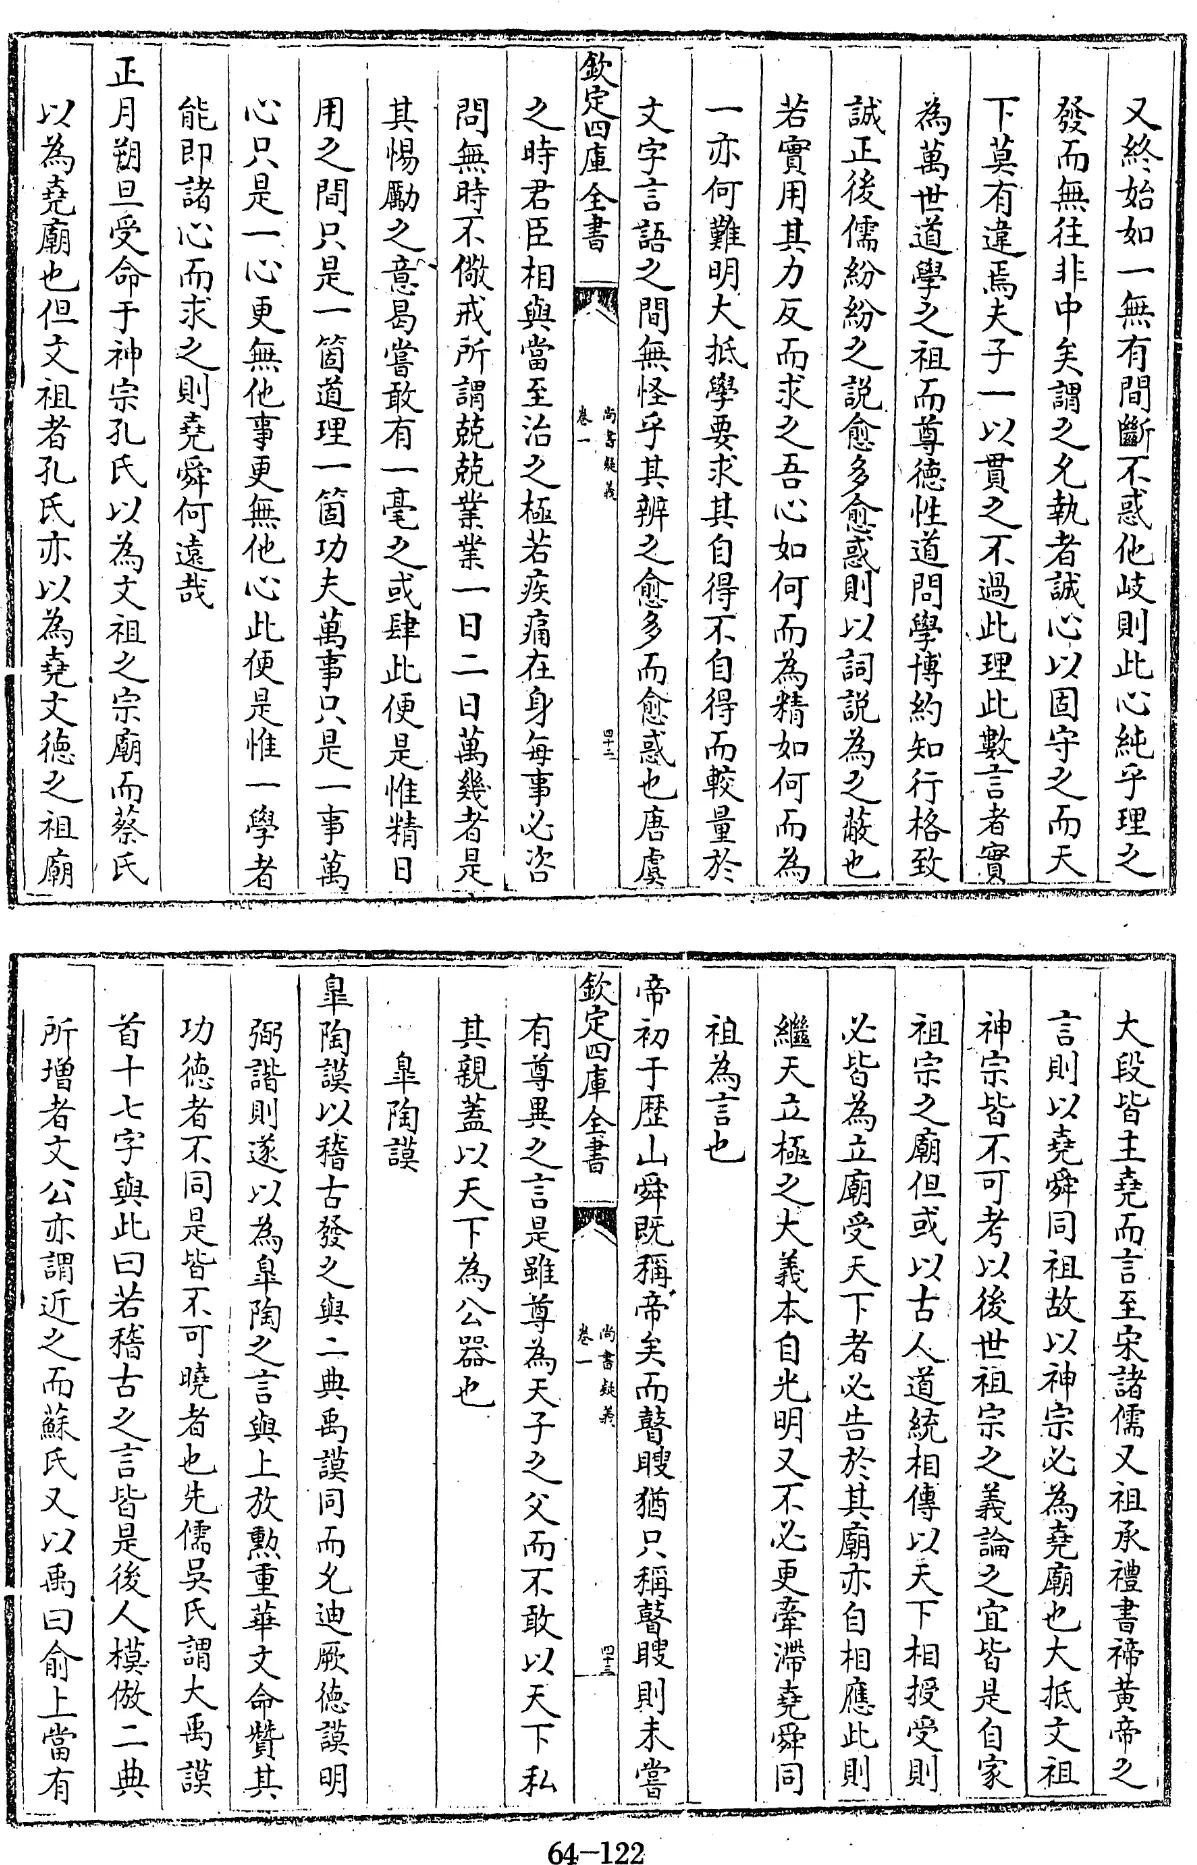 又終始如一無有間斷不惑他岐則此心純乎理之
發而無往非中矣謂之允執者誠心以固守之而天
下莫有違焉夫子一以貫之不過此理此數言者實
為萬世道學之祖而尊德性道問學博約知行格致
誠正後儒紛紛之説愈多愈惑則以詞説為之蔽也
若實用其力反而求之吾心如何而為精如何而為
一亦何難明大抵學要求其自得不自得而較量於
文字言語之間無怪乎其辨之愈多而愈惑也唐虞
欽定四庫全書
尚書疑義
卷一
四十二
之時君臣相與當至治之極若疾痛在身每事必咨
問無時不儆戒所謂兢兢業業一日二日萬幾者是
其惕勵之意曷嘗敢有一毫之或肆此便是惟精日
用之間只是一箇道理一箇功夫萬事只是一事萬
心只是一心更無他事更無他心此便是惟一學者
能即諸心而求之則堯舜何遠哉
正月朔旦受命于神宗孔氏以為文祖之宗廟而蔡氏
以為堯廟也但文祖者孔氏亦以為堯文德之祖廟
大段皆主堯而言至宋諸儒又祖承禮書禘黄帝之
言則以堯舜同祖故以神宗必為堯廟也大抵文祖
神宗皆不可考以後世祖宗之義論之宜皆是自家
祖宗之廟但或以古人道統相傳以天下相授受則
必皆為立廟受天下者必告於其廟亦自相應此則
繼天立極之大義本自光明又不必更牽滯堯舜同
祖為言也
帝初于歷山舜既稱帝矣而瞽瞍猶只稱瞽瞍則未嘗
欽定四庫全書
尚書疑義
卷一
四十三
有尊異之言是雖尊為天子之父而不敢以天下私
其親蓋以天下為公器也
臯陶謨
臯陶謨以稽古發之與二典禹謨同而允迪厥德謨明
弼諧則遂以為臯陶之言與上放勲重華文命贊其
功德者不同是皆不可曉者也先儒吳氏謂大禹謨
首十七字與此曰若稽古之言皆是後人模倣二典
所增者文公亦謂近之而蘇氏又以禹曰俞上當有
64-122